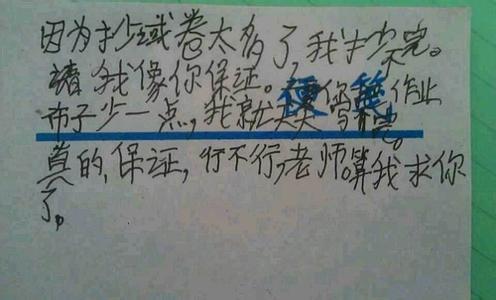 因为抄域卷太多了,我抄不完。
请我像你保证。你作业
布子少一点,我就天天写完。
真的,保证,行不行,老师。算我求你
了。